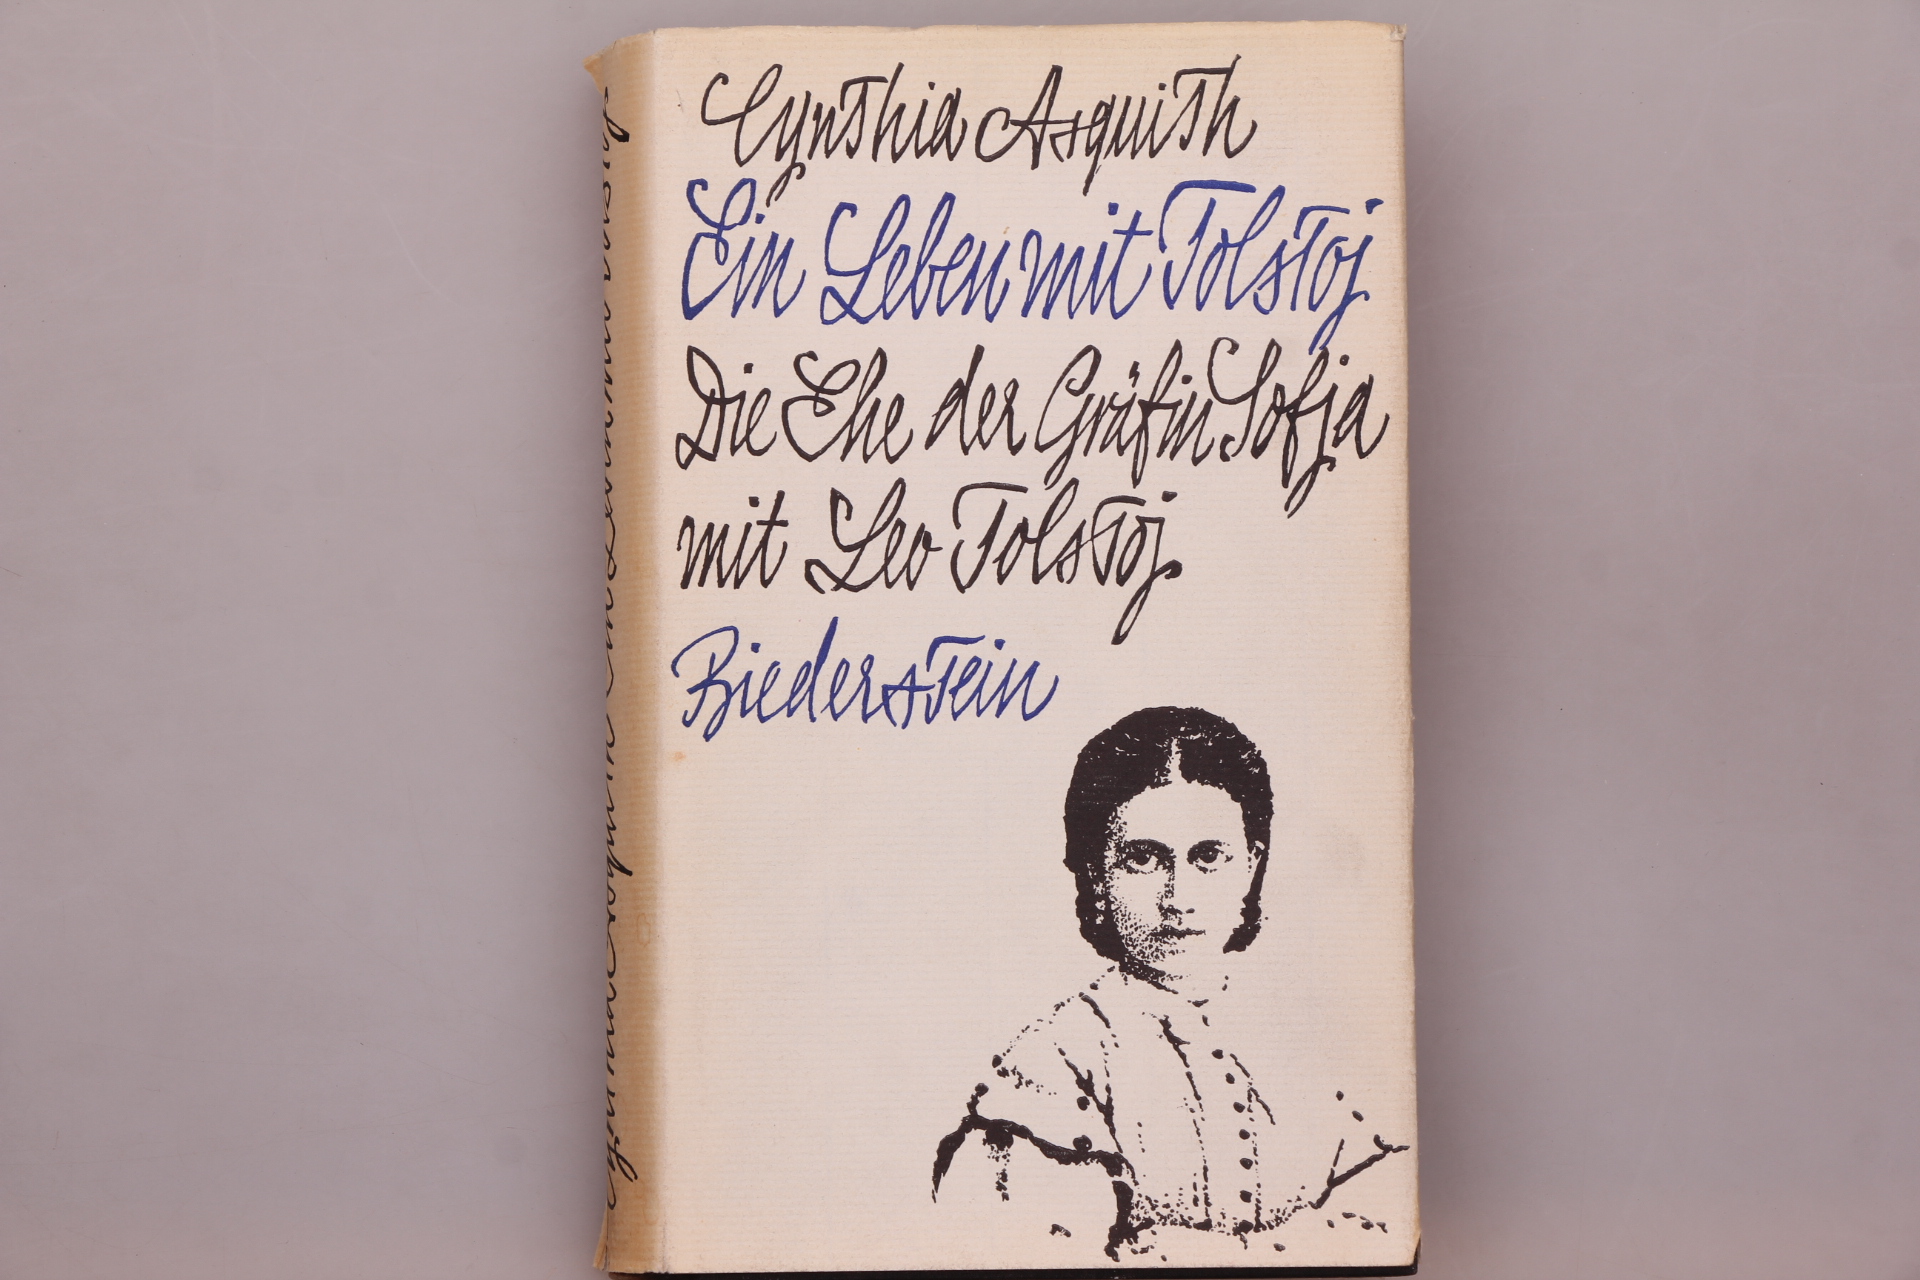 Cynthia Asquith
Ein Leben mit Tolstoj
Die Ehe der Gräfin Sofja
mit Leo Tolstoj
Biederstein
Cynthia Asquith Ein Leben mit Tolstoj